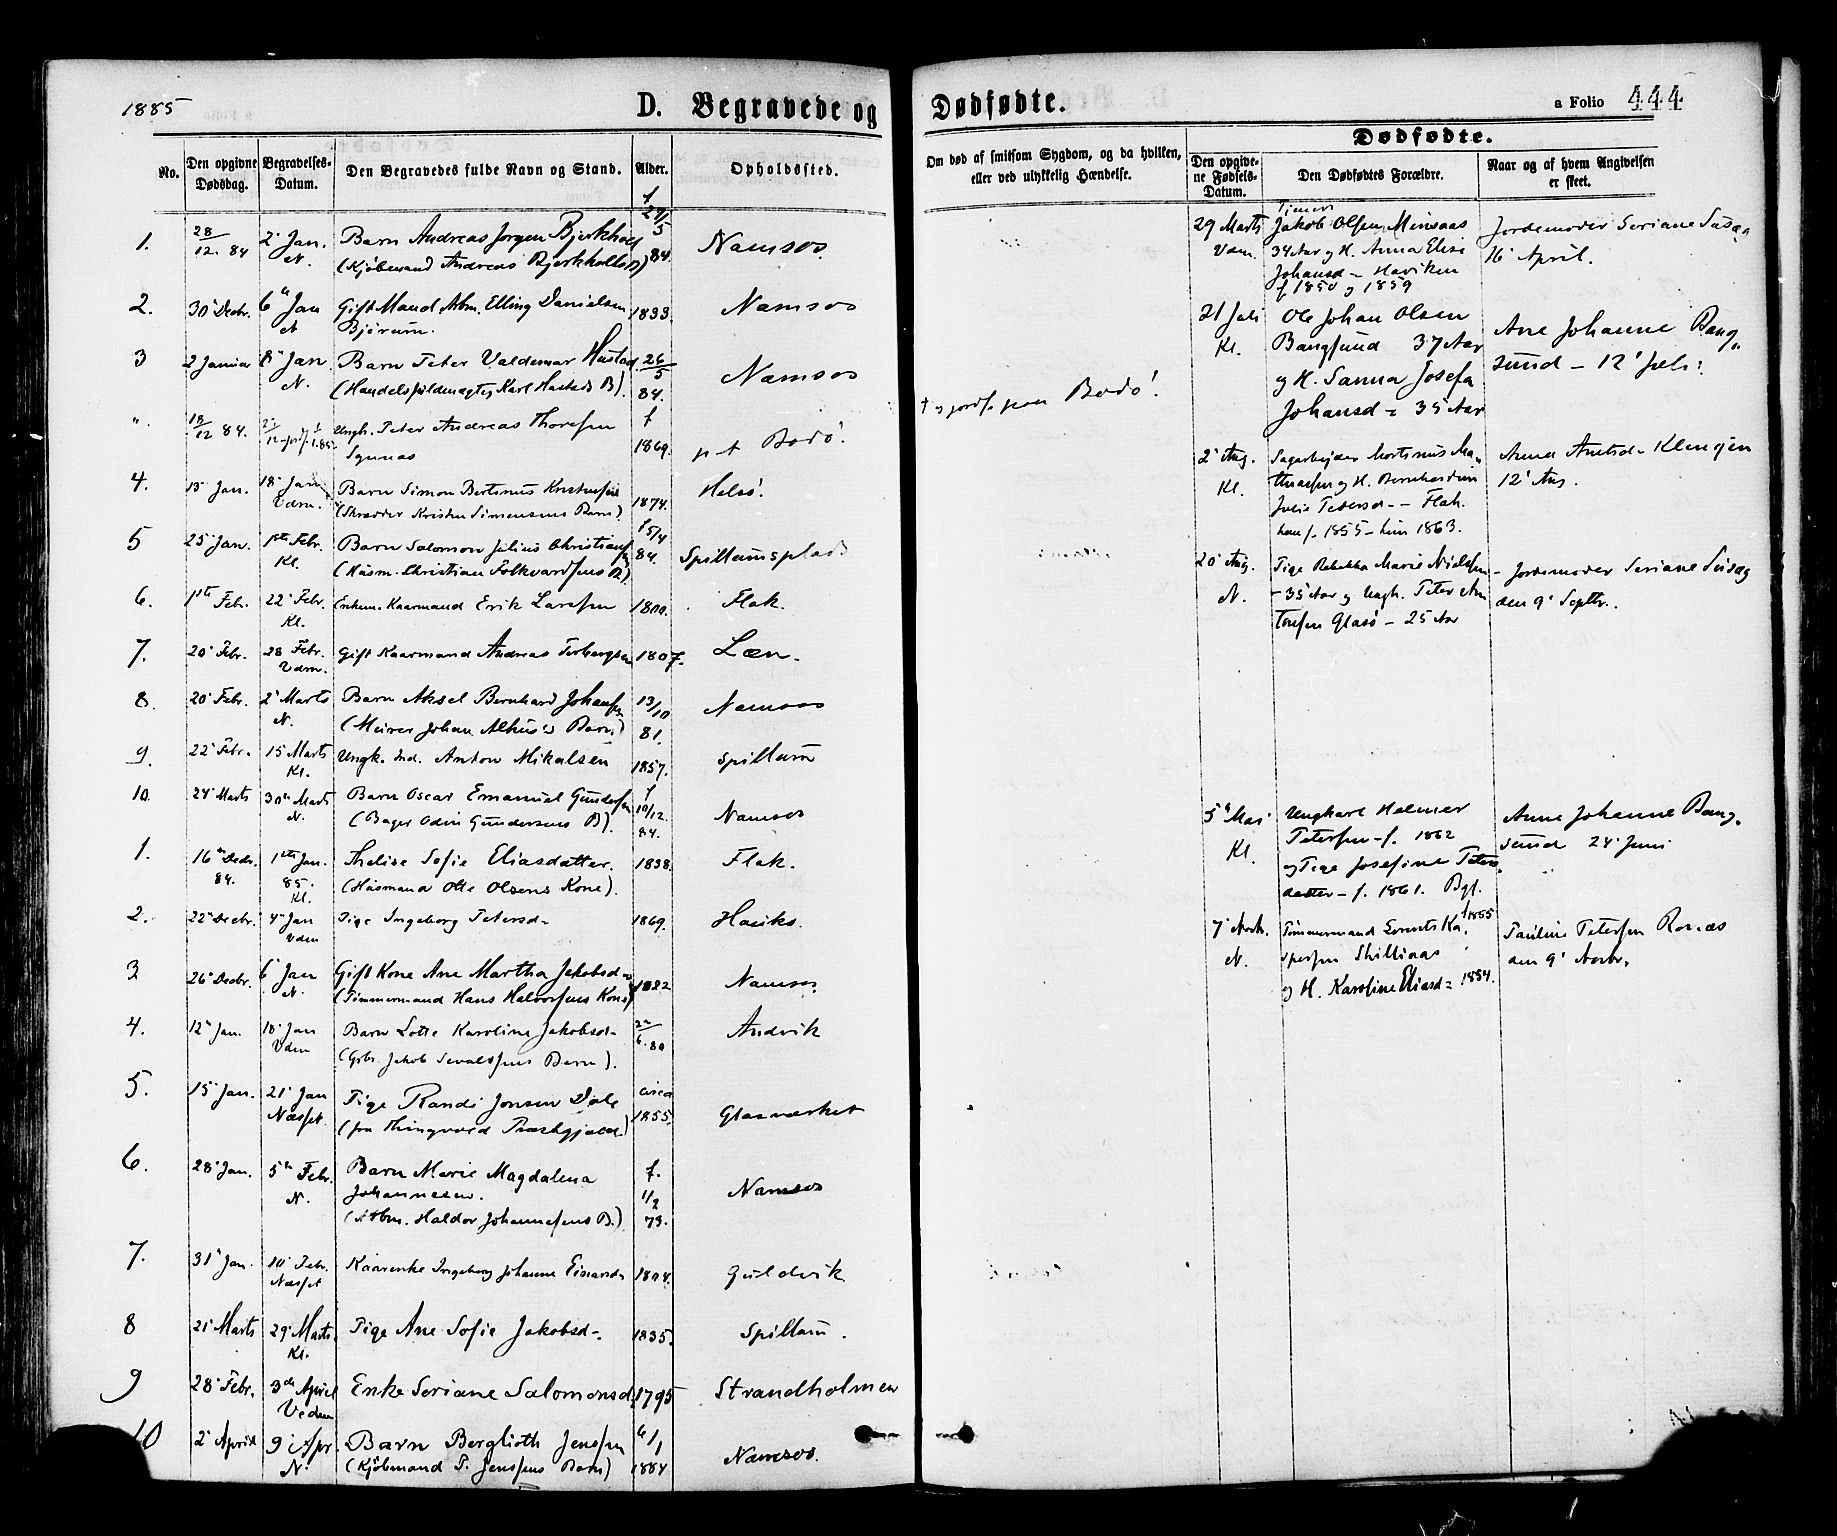 1885
D. Begravede og
Dødfødte.
a Folio 444
No.
Den opgivne Dødsdag.
Begravelses-Datum.
Den Begravedes fulde Navn og Stand.
Alder.
Opholdssted.
Om død af smitsom Sygdom, og da hvilken, eller ved ulykkelig Hændelse.
Dødfødte.
Den opgivne Fødsels-Datum.
Den Dødfødtes Forældre.
Naar og af hvem Angivelsen er skeet.
1. 28/12. 84 2' Jan. N. Barn Andreas Jørgen Bjerkholt f 29/5 84. Namsos.
(Kjøbmand Andreas Bjerkholts B)
2. 30' Decbr. 6te Jan N Gift Mand Arbm. Elling Danielsen 1833. Namsos
Bjørum.
3 2 Januar 8' Jan N. Barn Peter Valdemar Hustad 26/5 84. Namsos
(Handelsfuldmægtig Karl Hustads B).
" 18/12 84. Ungk. Peter Andreas Thoresen f 1869. p t Bodø.
Bodø!
4. 15 Jan. 18' Jan Vdm. Barn Simon Bertinus Kristensen 1874. Helsø.
(Skrædder Kristen Simensens Barn)
5 25' Jan. 1ste Febr. Kl. Barn Salomon Julius Christiansen f 5/4 84. Spillumsplads
(Husm. Christian Folkvardsens B)
6. 1ste Febr. 22' Febr. Kl. Enkem. Kaarmand Erik Larssen 1800. Flak.
7. 20' Febr. 28 Febr. Vdm. Gift Kaarmand Andreas Torbergsen 1807. Læn.
8. 20' Febr. 2' Marts N. Barn Aksel Bernhard Johansen 13/10 81. Namsos
(Murer Johan Alhus's Barn)
9. 22' Febr. 15 Marts Kl. Ungk. Ind. Anton Mikalsen 1857. Spillum
10. 24' Marts 30te Marts N. Barn Oscar Emanuel Gundersen f 10/12. 84. Namsos
(Bager Odin Gundersens B).
1. 16te Decbr. 84. 1ste Jan. 85. Kl. Thelise Sofie Eliasdatter. 1838. Flak.
(Husmand Ole Olsens Kone).
2. 22' Decbr. 4' Jan Vdm Pige Ingeborg Petersd- 1869.
3 26' Decbr. 6' Jan N. Gift Kone Ane Martha Jakobsd- 1822 Namsos
(Timmermand Hans Halvorsens Kone)
4. 12' Jan. 18' Jan Vdm Barn Lotte Karoline Jakobsd- 6. 80 Andvik
(Grbr. Jakob Sevaldsens Barn).
5. 15' Jan. 21' Jan Næsset. Pige Randi Jonsen Dale circa 1855. Glasværket
(fra Thingvold Præstgjæld)
6. 28' Jan. 5te Febr. N. Barn Marie Magdalena f. 1/2 73. Namsos
Johannesen.
(Arbm. Haldor Johannesens B.)
7. 31' Jan. 10' Febr. Næsset Kaarenke Ingeborg Johanne Einarsd- 1804. Guldvik
8 21' Marts 29' Marts. Kl. Pige Ane Sofie Jakobsd-. 1835. Spillum.
9 28' Febr. 3die April Vedm Enke Seriane Salomonsd. 1795 Strandholmen
10 2' April 9' Apr. N. Barn Berglioth Jenssen 6/1 1884 Namsos.
(Kjøbmand P. Jenssens Barn)
29 Marts Vdm. Jakob Olsen 34 Aar og H. Anna Elise Johansd - Haviken f 1850 og 1859 Jordemoder Seriane 16' April.
21 Juli Kl. Ole Johan Olsen Bangsund 37 Aar og H. Sanna Josefa Johansd - 35 Aar Ane Johanne Bangsund - 12' 
2' Aug. Kl. Sagarbeider Mortinus Mathiassen og H. Bernhardine Julie Petersd - - Flak. han f. 1855 - hun 1863. Anna Amtsd- Klengen 12' Aug.
20' Aug. N. Pige Rebekka Marie Nielsen - 35 Aar og Ungk. Peter Antonsen Glasø - 25 Aar - Jordemoder Seriane den 9' Septbr.
5' Mai Kl. Ungkarl Helmer Petersen - f. 1862 og Pige Josefine Petersdatter - f. 1861. Bgs. Anne Johanne Bangsund 24' Juni
7' Novb. N. Tømmermand Lorents Kaspersen Skillinaas f 1855 og H. Karoline Eliasd - 1854. Pauline Petersen den 9' Novbr.